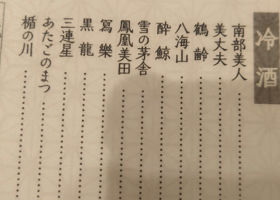 冷酒
南部美人
美丈夫
鶴齢
八海山
酔鯨
雪の茅舎
鳳凰美田
寫樂
黒龍
三連星
あたごのまつ
楯の川